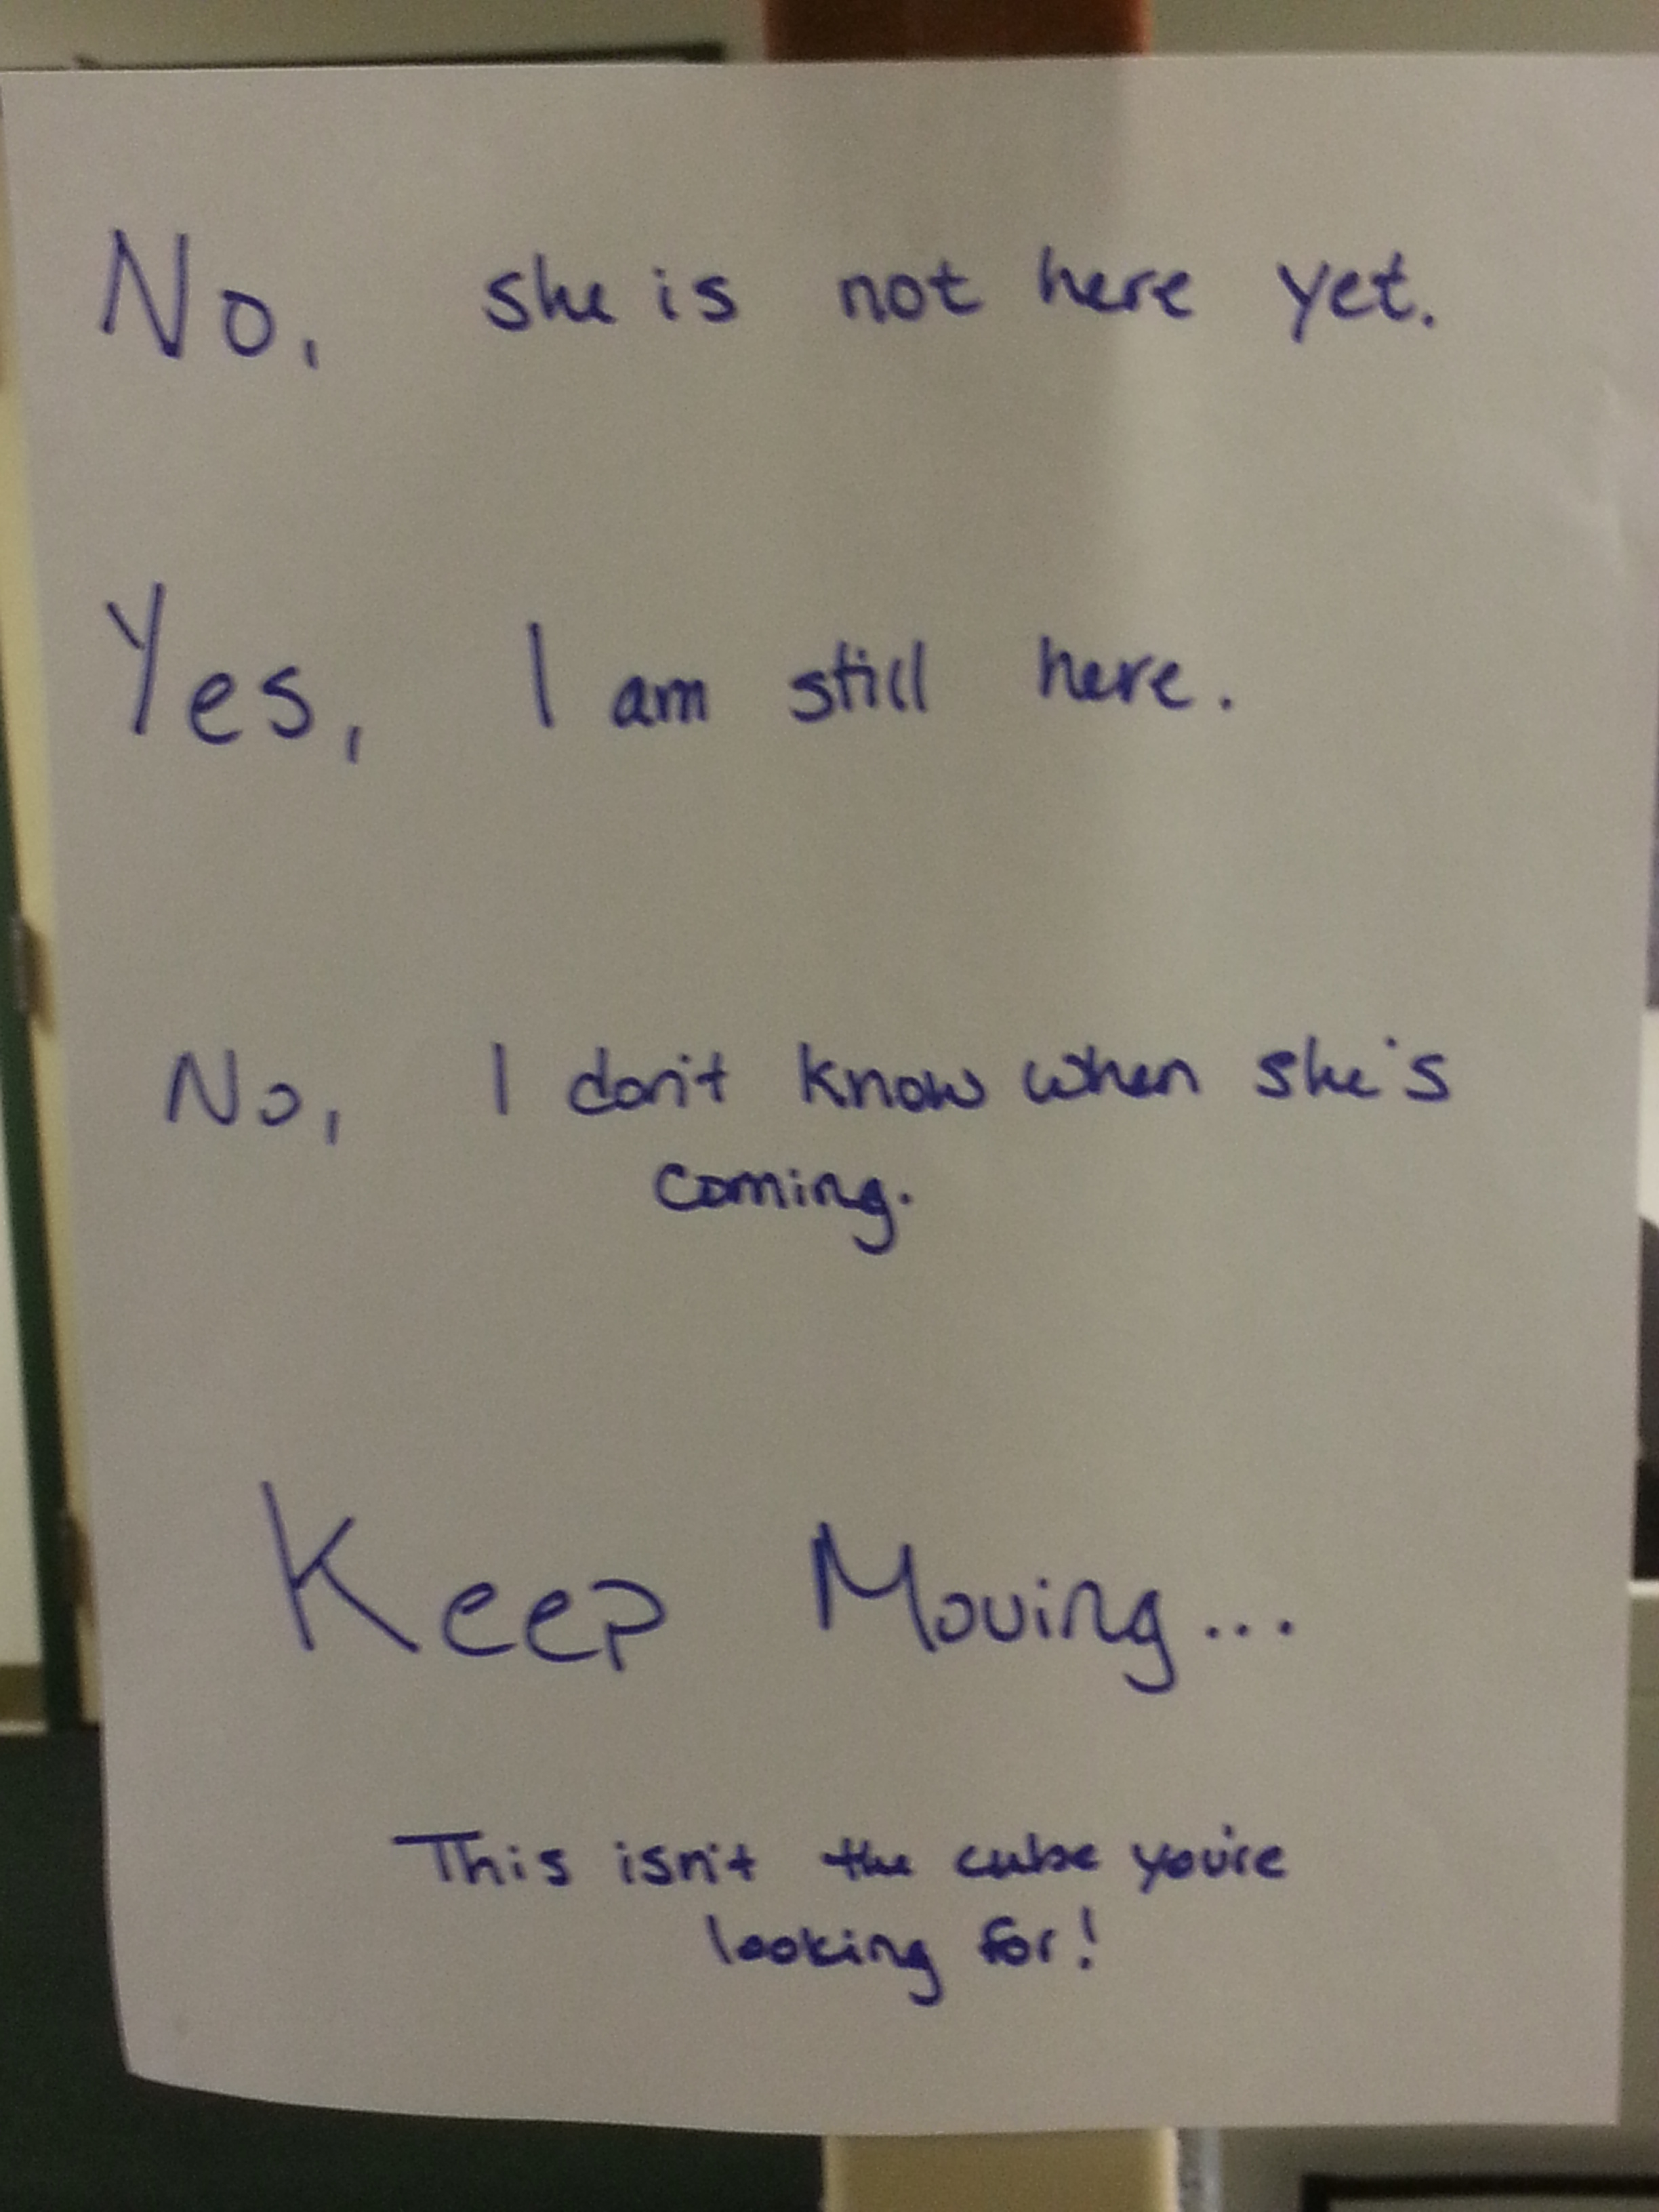 No, she is not here yet.
Yes, I am still here.
No, I don't know when she's
coming.
Keep Moving...
This isn't the cube you're
looking for!